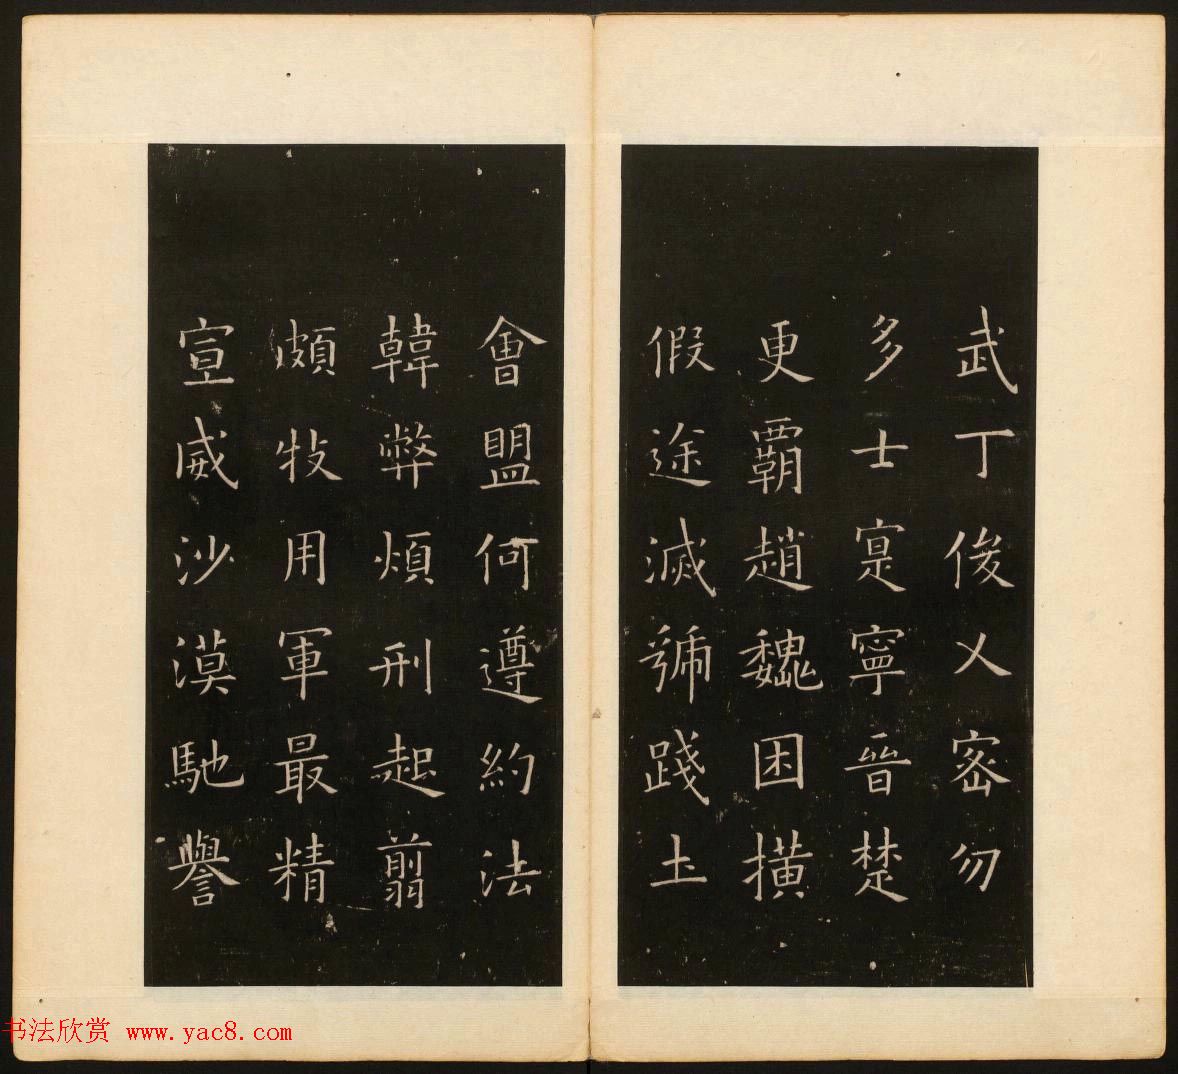 武丁俊乂密勿
多士寔寧晉楚
更霸趙魏困橫
假途滅虢踐土
會盟何遵約法
韓弊煩刑起翦
頗牧用軍最精
宣威沙漠馳譽
书法欣赏 www.yac8.com